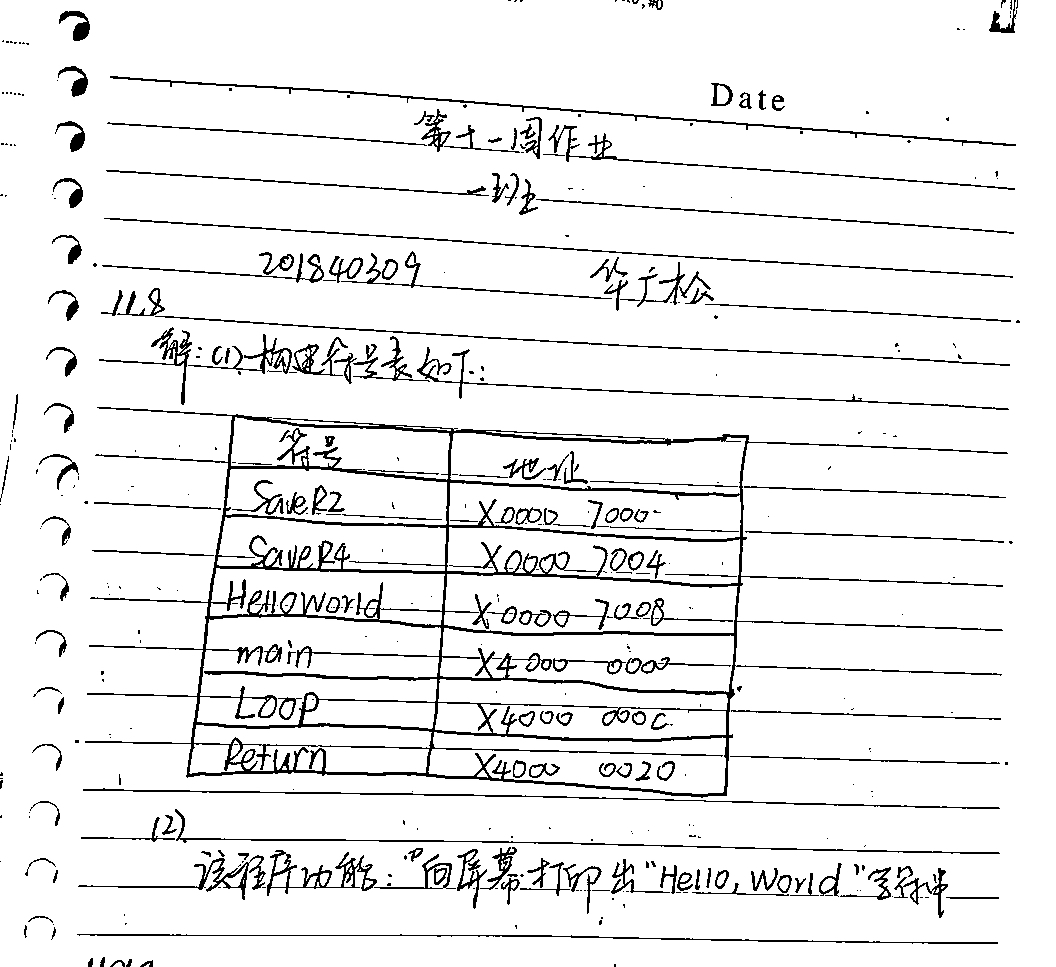 Date
第十一周作业
一班
201840309 华广松
11.8
解:(1)构建符号表如下:
符号 地址
SaveR2 X0000 7000
SaveR4 X0000 7004
HelloWorld X0000 7008
main X4000 0000
LOOP X4000 000C
Return X4000 0020
(2)
该程序功能:"向屏幕打印出"Hello, World"字符串